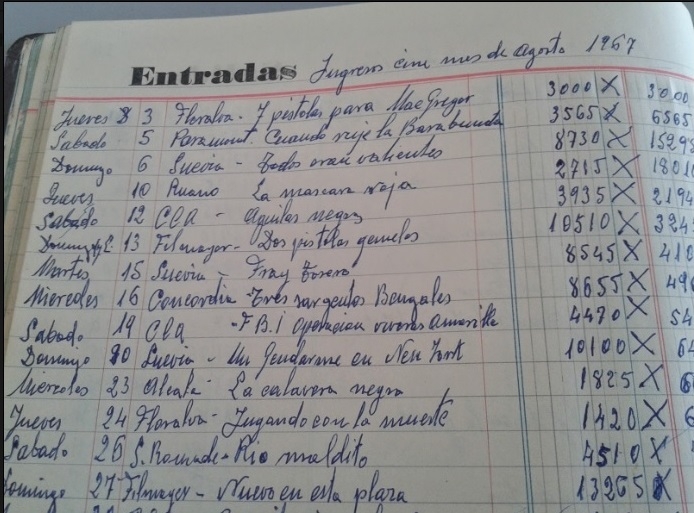 Entradas Ingresos cine mes de Agosto 1967
Jueves 3 Floralva - 7 pistolas para Mac Gregor 3000 X 3000
Sabado 5 Paramount. Cuando ruje la Barabunda 3565 X 6565
Domingo 6 Suevia - Todos eran valientes 8730 X 15295
Jueves 10 Ruano La mascara roja 2715 X 1801
Sabádo 12 CEA - Aguilas negras 3935 X 2194
13 Filmayer - Dos pistolas gemelas 10510 X 324
Martes 15 Suevia - Fray Torero 8545 X 410
Miercoles 16 Concordia Tres sargentos Bengales 8655 X 496
Sabado 19 CEA - F.B.I Operacion Amarilla 4470 X 54
Domingo 20 Suevia - Un Gendarme en New York 10100 X 64
Miércoles 23 Alcala - La calavera negra 1825 X 6
Jueves 24 Floralva - Jugando con la muerte 1420 X 6
Sabado 26 - Rio maldito 4510 X
Domingo 27 Filmayer - Nuevo en esta plaza 13265 X